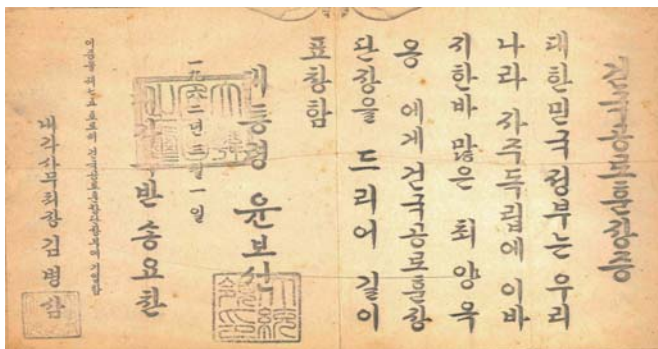 건국공로훈장증
대한민국정부는 우리
나라 자주독립에 이바
지한바 많은 최양옥
옹 에게 건국공로훈장
단장을 드리어 길이
표창함
대통령 윤보선
一九六二년 三월 一일
내각수반 송요찬
이증을 건국공로훈장부에 기입함
내각사무처장 김병삼